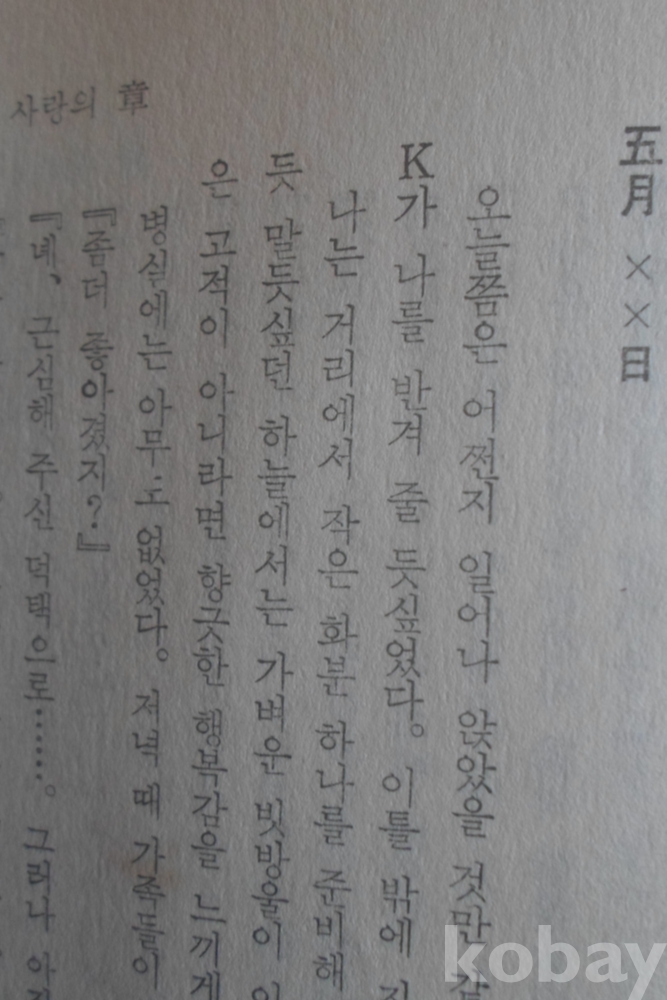 五月 ××日
오늘쯤은 어쩐지 일어나 앉았을 것만
K가 나를 반겨 줄 듯싶었다. 이틀 밖에
나는 거리에서 작은 화분 하나를 준비해
듯 말듯싶던 하늘에서는 가벼운 빗방울이
은 고적이 아니라면 향긋한 행복감을 느끼게
병실에는 아무도 없었다. 저녁 때 가족들이
『좀더 좋아졌지?』
『녜, 근심해 주신 덕택으로……。 그러나
사랑의 章
kobay